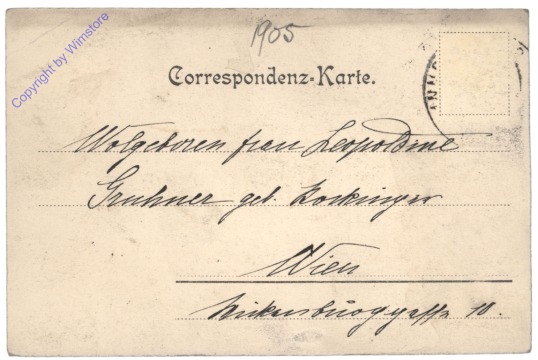 1905
Copyright by Wimstore
Correspondenz-Karte.
Wolgeboren frau Leopoldine
Gruhner geb. Lockinger
Wien
10.